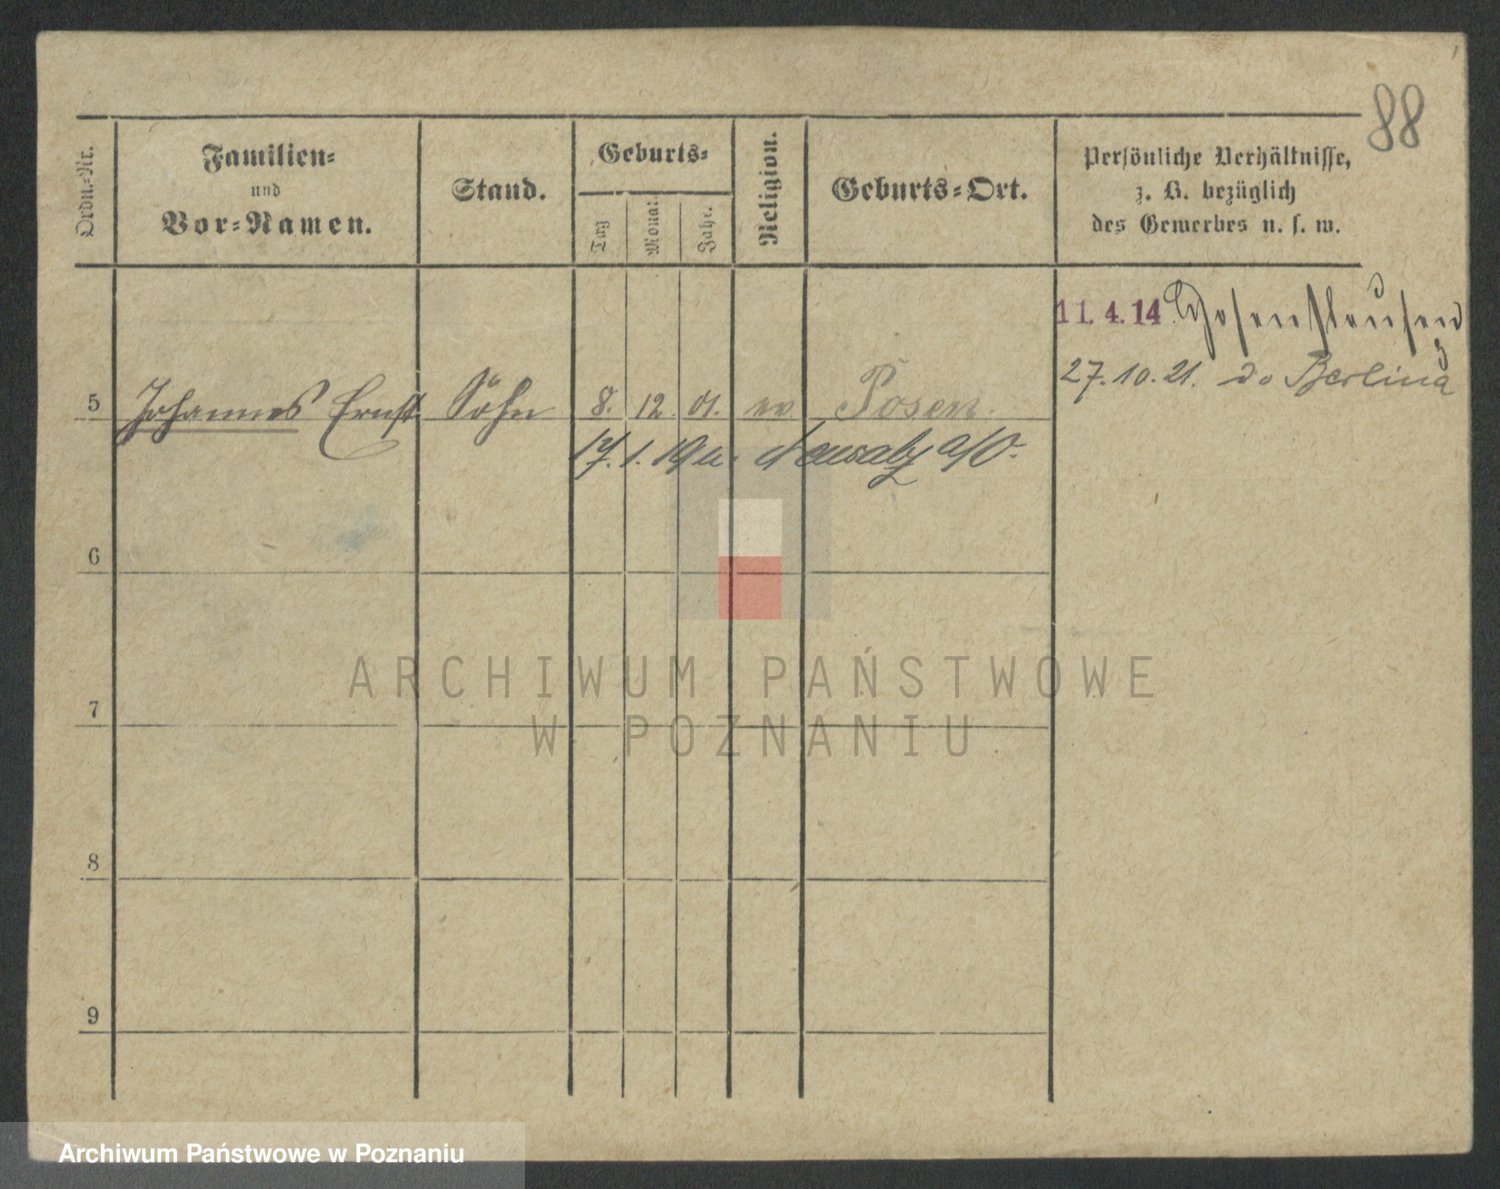 88
Ordn.-Nr.
Familien-
und
Vor-Namen.
Stand.
Geburts-
Tag
Monat.
Jahr.
Religion.
Geburts-Ort.
Persönliche Verhältnisse,
z. B. bezüglich
des Gewerbes u. s. w.
11. 4. 14
27. 10. 21. do Berlina
5 Johannes Ernst Sohn 8. 12. 01. ev Posen.
17. 1. a/O.
6
7
8
9
ARCHIWUM PAŃSTWOWE
W POZNANIU
Archiwum Państwowe w Poznaniu